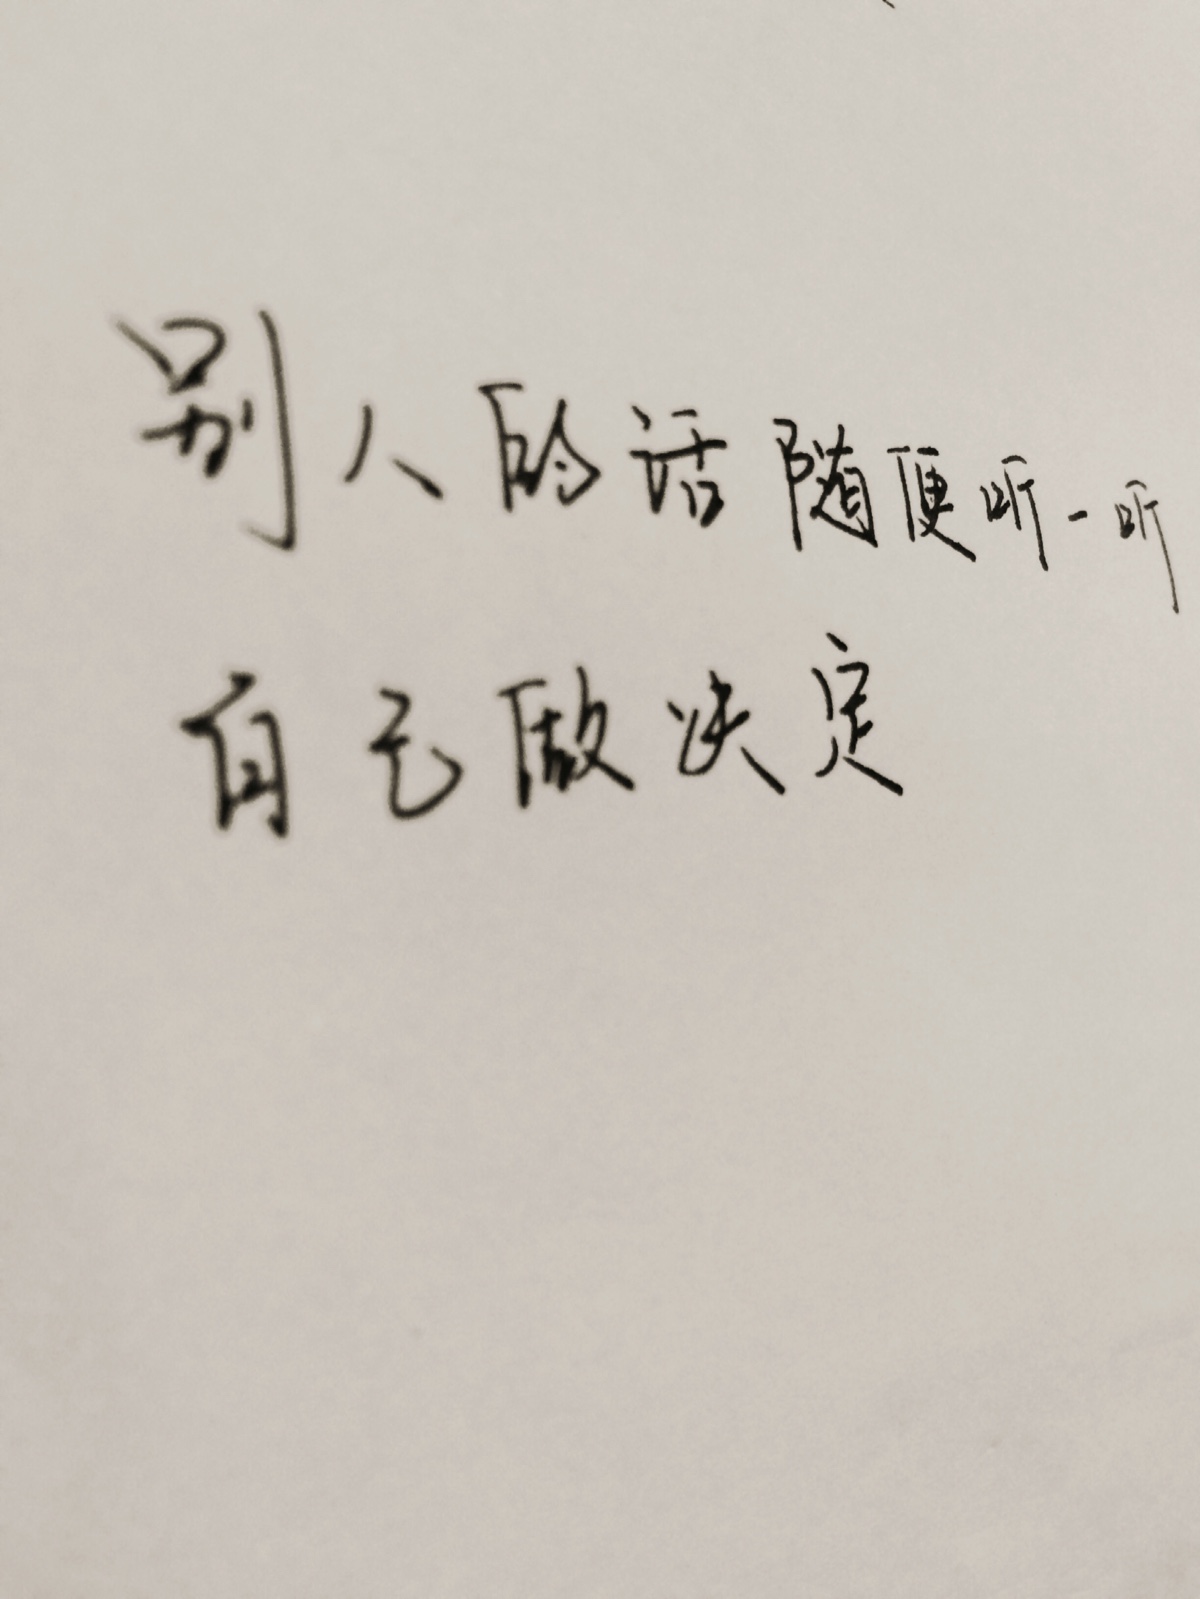 别人的话随便听一听
自己做决定